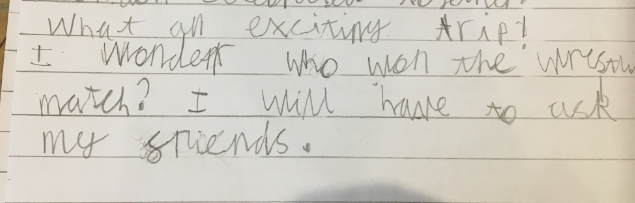 What an exciting trip!
I wonder who won the
match? I will have to ask
my friends.